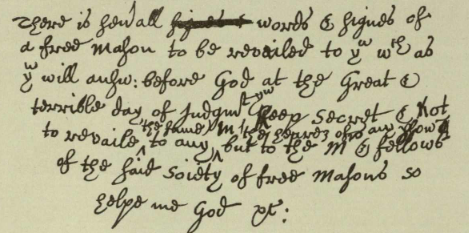 There is sevall signes & words & signes of
a free Mason to be revailed to yw wch as
yw will answ: before God at the Great &
terrible day of Judgmt yw keep Secret & not
to revaile the same to any in the heares of any pson
but to the Mrs & fellows
of the said Society of free Masons so
helpe me God xt: